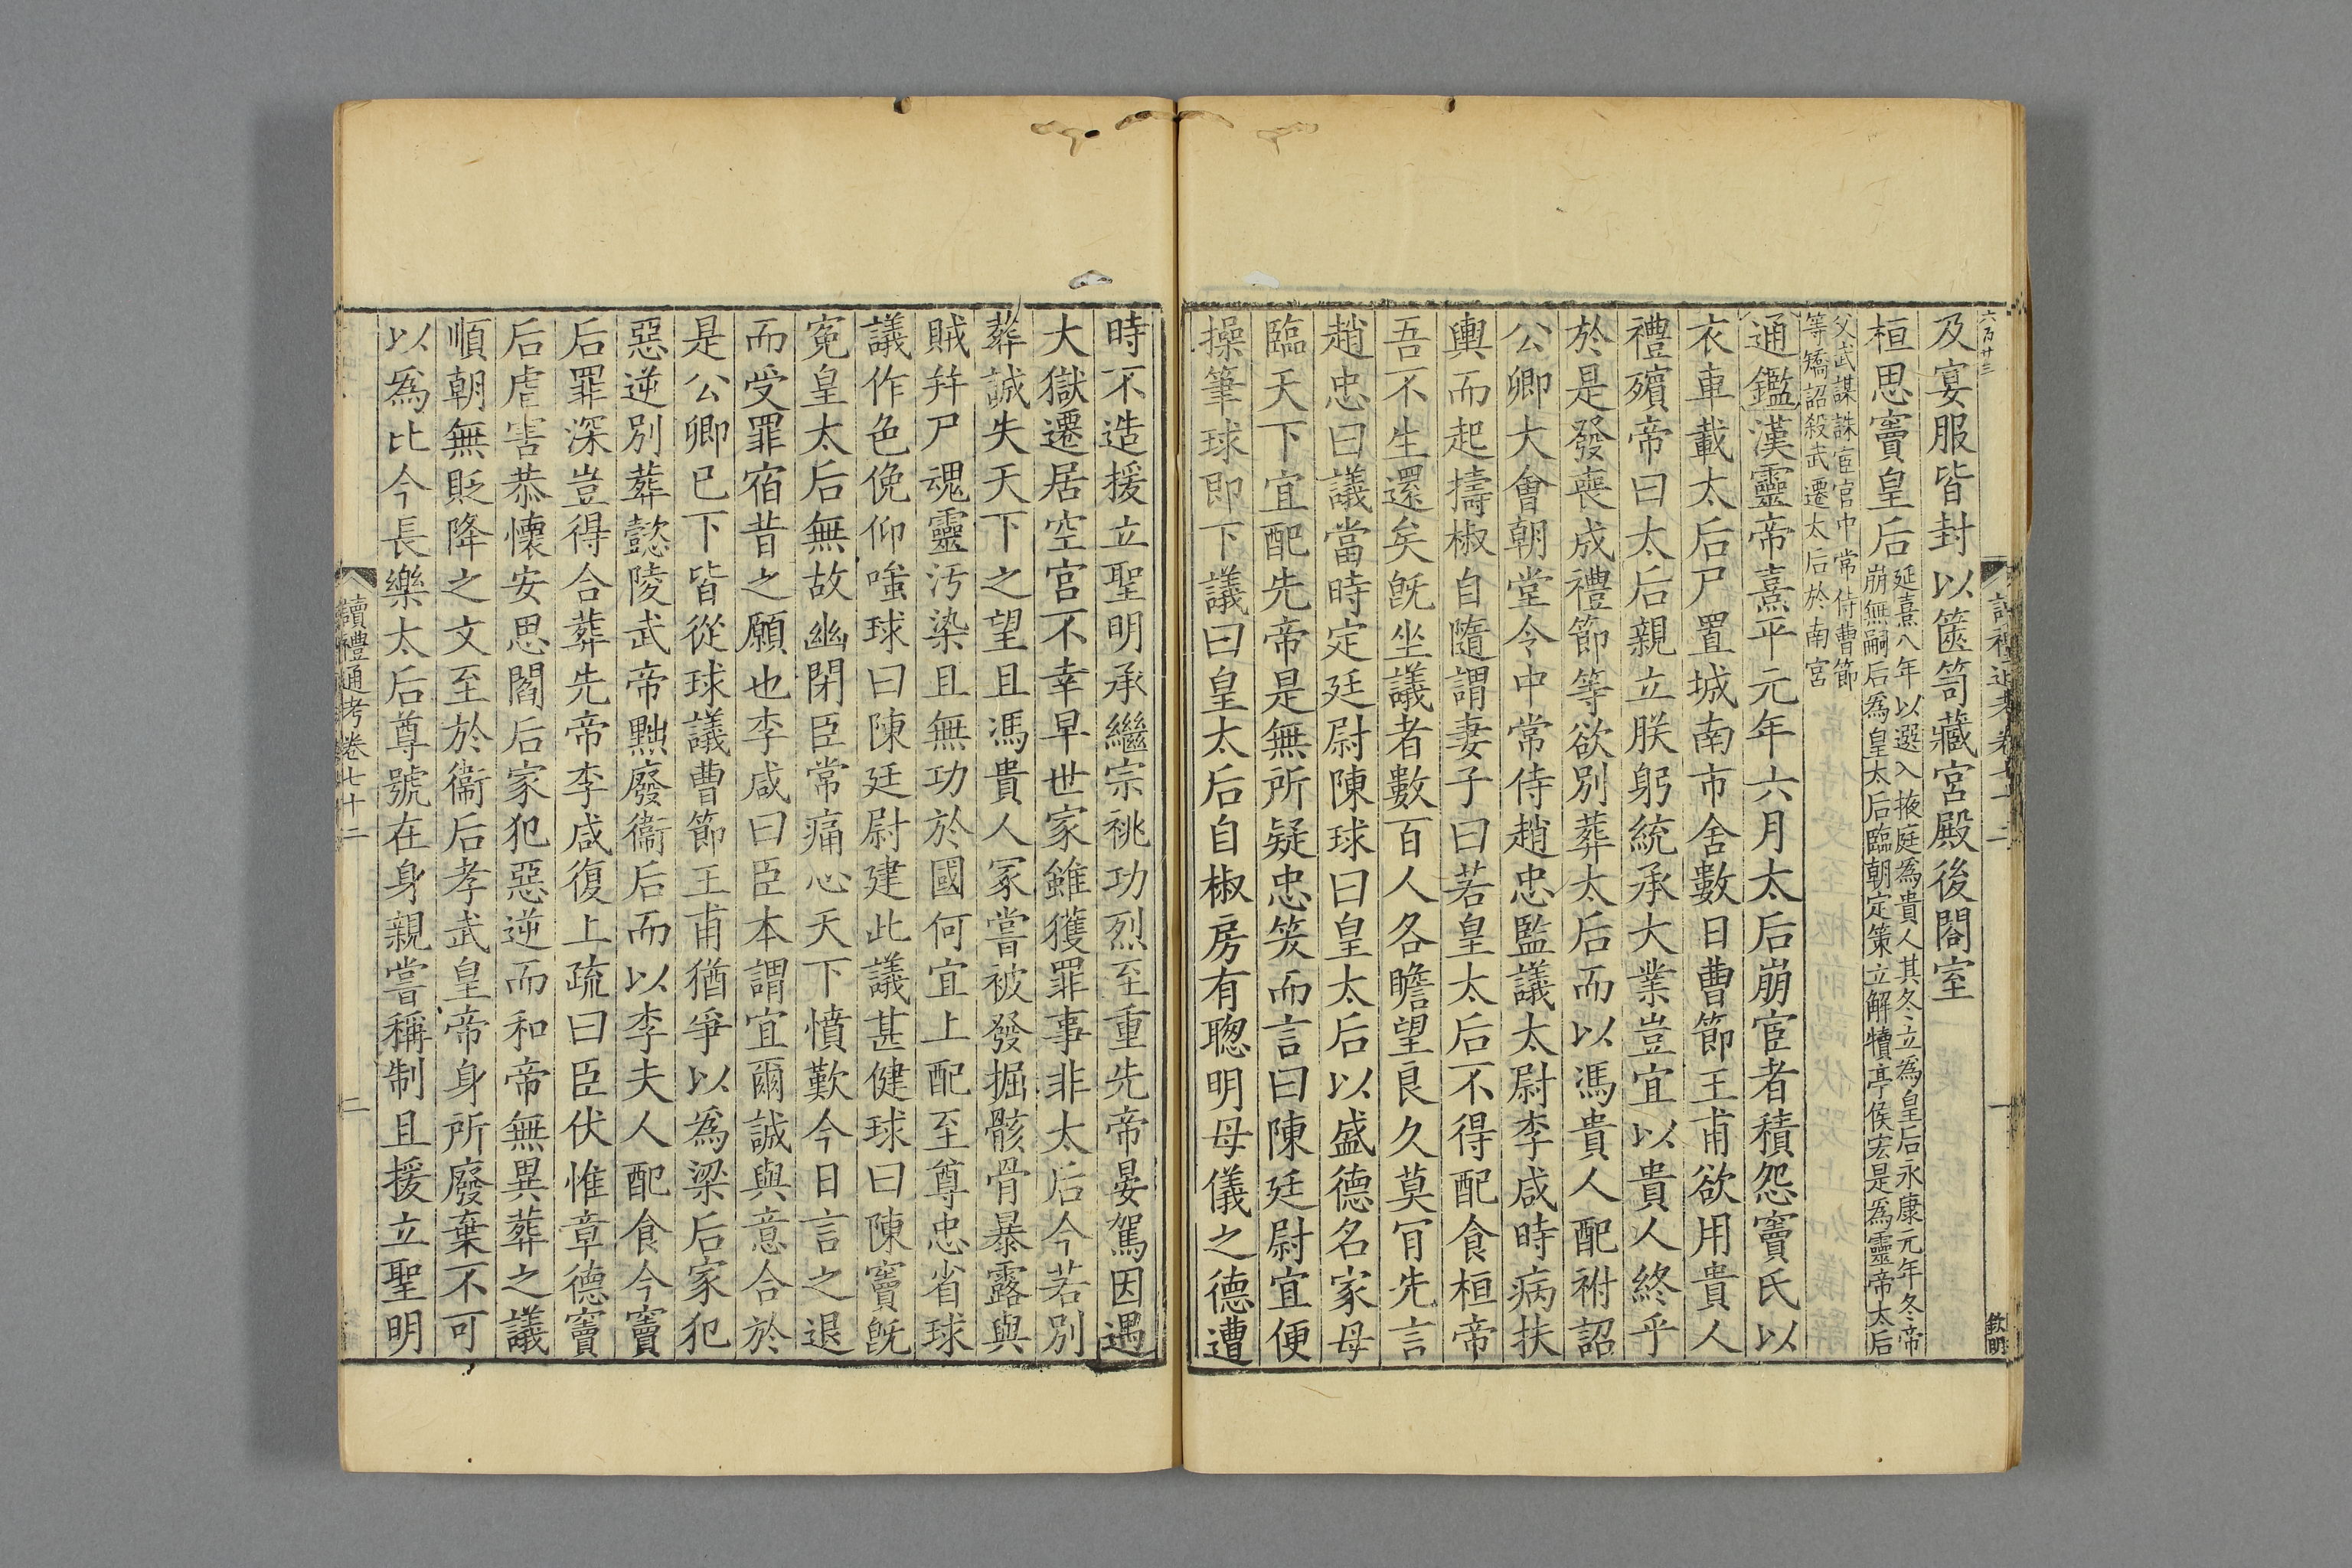 六百廿三
及宴服皆封以篋笥藏宮殿後閤室
桓思竇皇后
延熹八年以選入掖庭為貴人其冬立為皇后永康元年冬帝
崩無嗣后為皇太后臨朝定策立解犢亭侯宏是為靈帝太后
父武謀誅宦官中常侍曹節
等矯詔殺武遷太后於南宮
通鑑漢靈帝熹平元年六月太后崩宦者積怨竇氏以
衣車載太后尸置城南市舍數日曹節王甫欲用貴人
禮殯帝曰太后親立朕躬統承大業豈宜以貴人終乎
於是發喪成禮節等欲別葬太后而以馮貴人配祔詔
公卿大會朝堂令中常侍趙忠監議太尉李咸時病扶
輿而起擣椒自隨謂妻子曰若皇太后不得配食桓帝
吾不生還矣旣坐議者數百人各瞻望良久莫肎先言
趙忠曰議當時定廷尉陳球曰皇太后以盛德名家母
臨天下宜配先帝是無所疑忠笑而言曰陳廷尉宜便
操筆球即下議曰皇太后自椒房有聰明母儀之德遭
欽明
時不造援立聖明承繼宗祧功烈至重先帝晏駕因遇
大獄遷居空宮不幸早世家雖獲罪事非太后今若別
葬誠失天下之望且馮貴人冢嘗被發掘骸骨暴露與
賊幷尸魂靈汚染且無功於國何宜上配至尊忠省球
議作色俛仰嗤球曰陳廷尉建此議甚健球曰陳竇旣
冤皇太后無故幽閉臣常痛心天下憤歎今日言之退
而受罪宿昔之願也李咸曰臣本謂宜爾誠與意合於
是公卿已下皆從球議曹節王甫猶爭以為梁后家犯
惡逆別葬懿陵武帝黜廢衞后而以李夫人配食今竇
后罪深豈得合葬先帝李咸復上疏曰臣伏惟章德竇
后虐害恭懷安思閻后家犯惡逆而和帝無異葬之議
順朝無貶降之文至於衞后孝武皇帝身所廢棄不可
以爲比今長樂太后尊號在身親嘗稱制且援立聖明
讀禮通考卷七十二
二